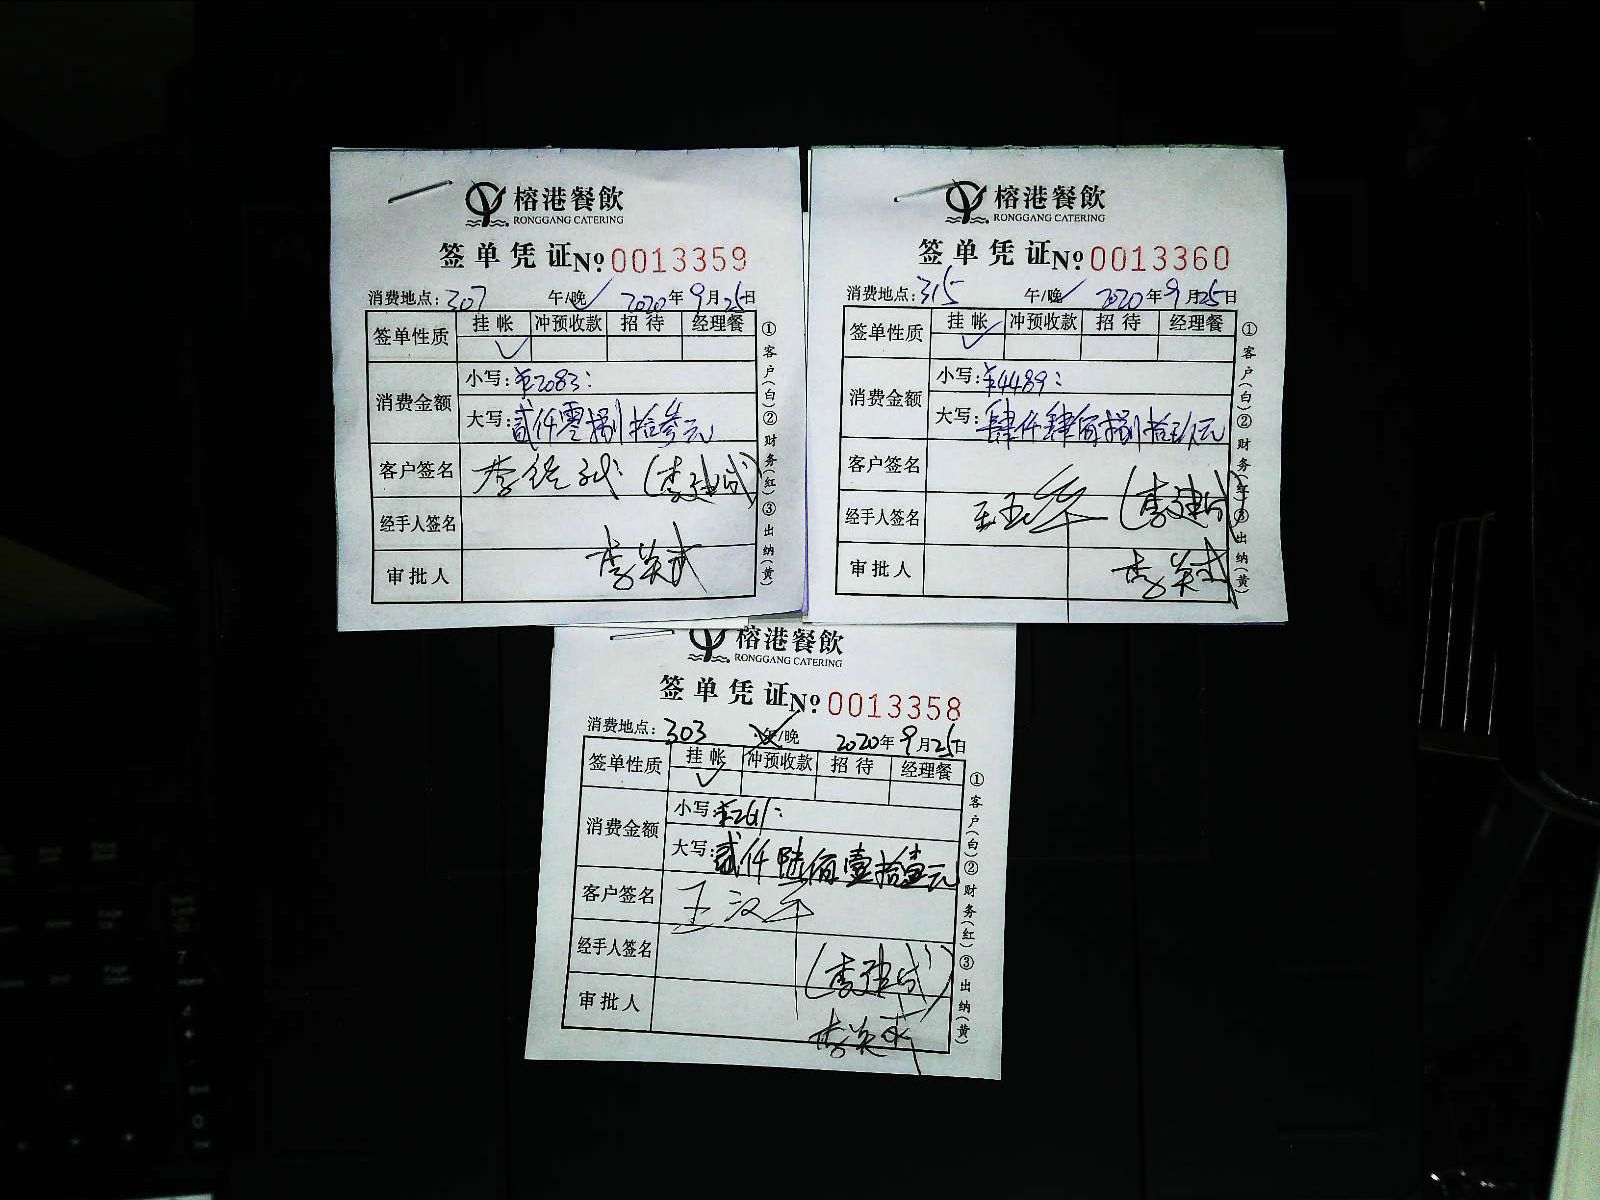 榕港餐飲
RONGGANG CATERING
签单凭证 No 0013359
消费地点: 307 午/晚✓ 2020年9月25日
签单性质 挂帐 冲预收款 招待 经理餐
✓
消费金额 小写: ¥2083:
大写: 贰仟零捌拾叁元
客户签名 (李建成)
经手人签名
审批人
①客户(白)②财务(红)③出纳(黄)
榕港餐飲
RONGGANG CATERING
签单凭证 No 0013360
消费地点: 315 午/晚✓ 2020年9月25日
签单性质 挂帐 冲预收款 招待 经理餐
✓
消费金额 小写: ¥4489:
大写: 肆仟肆佰捌拾玖元
客户签名
经手人签名 (李建成)
审批人
①客户(白)②财务(红)③出纳(黄)
榕港餐飲
RONGGANG CATERING
签单凭证 No 0013358
消费地点: 303 午/晚 2020年9月25日
签单性质 挂帐 冲预收款 招待 经理餐
✓
消费金额 小写: ¥2611:
大写: 贰仟陆佰壹拾壹元
客户签名
经手人签名 (李建成)
审批人
①客户(白)②财务(红)③出纳(黄)